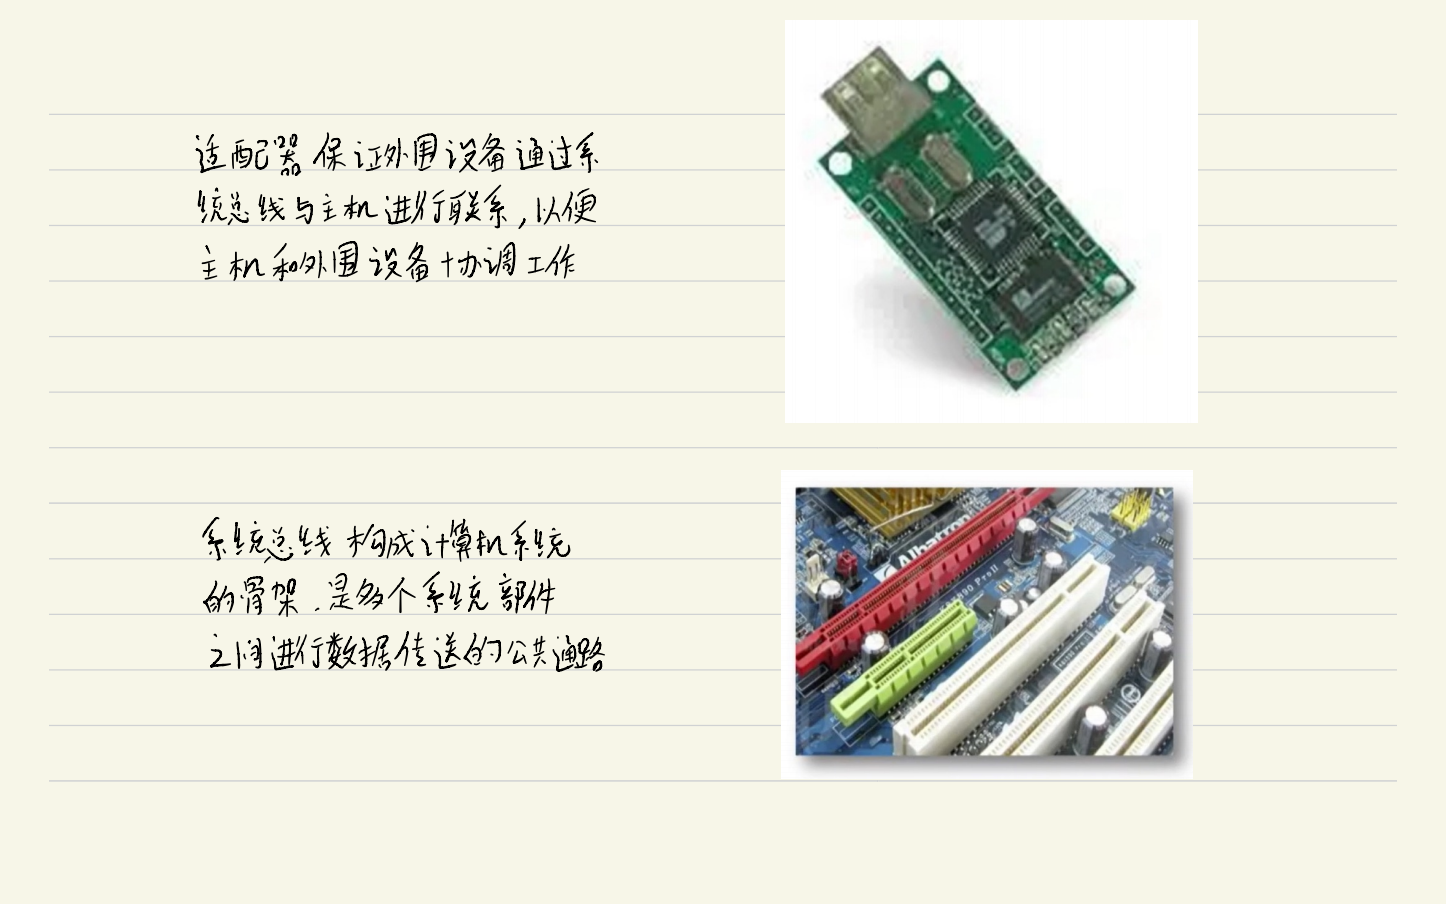 适配器 保证外围设备通过系
统总线与主机进行联系，以便
主机和外围设备协调工作
系统总线 构成计算机系统
的骨架，是多个系统部件
之间进行数据传送的公共通路
Albatron